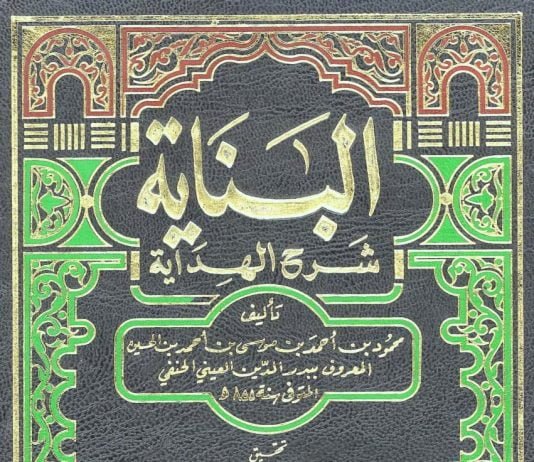 البناية
شرح الهداية
تأليف
محمود بن أحمد بن موسى بن أحمد بن الحسين
المعروف ببدر الدين العيني الحنفي
المتوفى سنة ٨٥٥ هـ
تحقيق